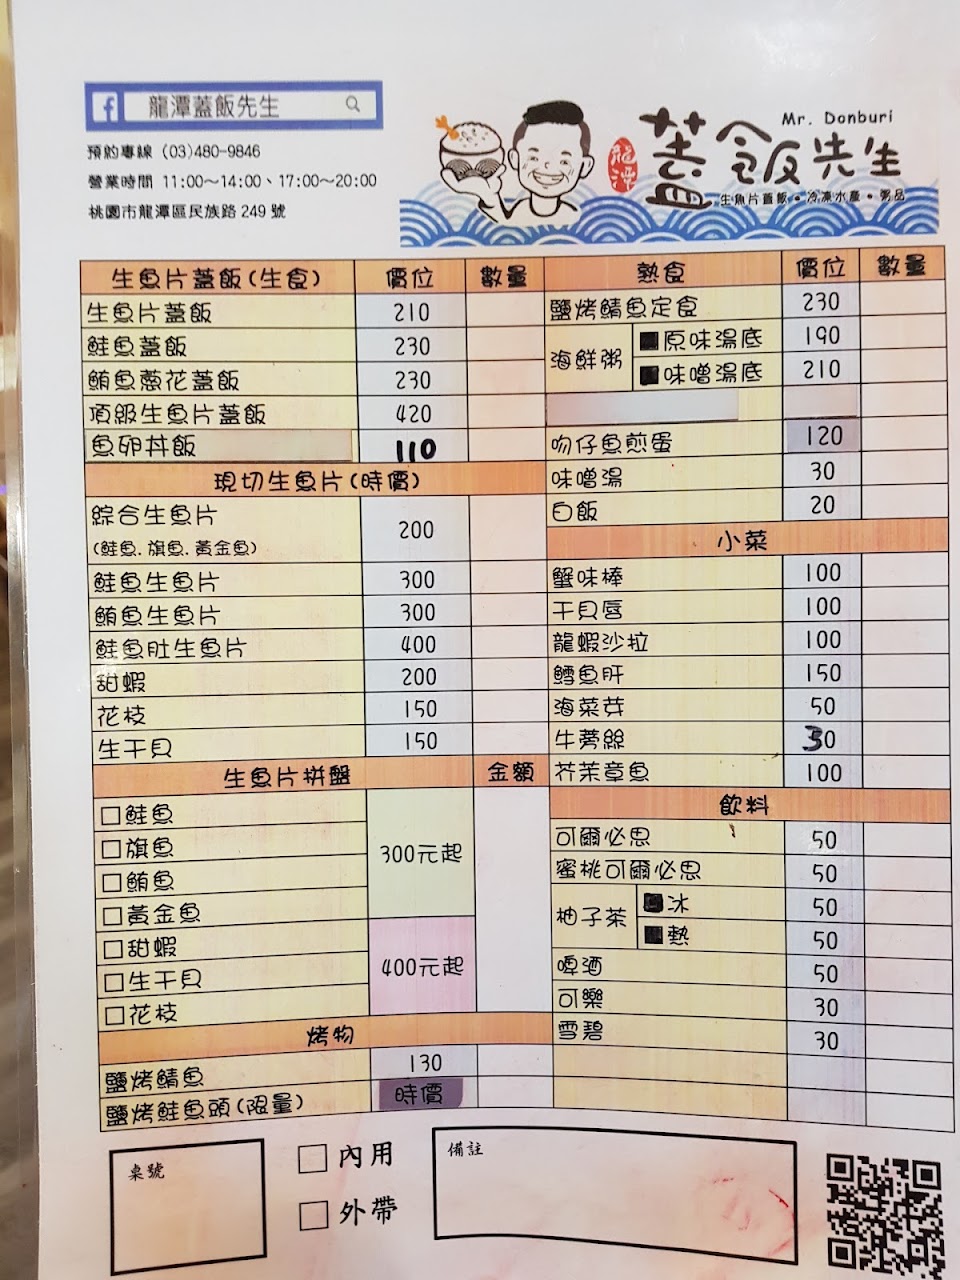 龍潭蓋飯先生
預約專線 (03)480-9846
營業時間 11:00～14:00、17:00～20:00
桃園市龍潭區民族路 249 號
Mr. Donburi
龍潭 蓋飯先生
生魚片蓋飯•冷凍水產•粥品
生魚片蓋飯(生食) 價位 數量
生魚片蓋飯 210
鮭魚蓋飯 230
鮪魚蔥花蓋飯 230
頂級生魚片蓋飯 420
魚卵丼飯 110
現切生魚片(時價)
綜合生魚片 200
(鮭魚.旗魚.黃金魚)
鮭魚生魚片 300
鮪魚生魚片 300
鮭魚肚生魚片 400
甜蝦 200
花枝 150
生干貝 150
生魚片拼盤 金額
□鮭魚
□旗魚
□鮪魚
□黃金魚
300元起
□甜蝦
□生干貝
□花枝
400元起
烤物
鹽烤鯖魚 130
鹽烤鮭魚頭(限量) 時價
熟食 價位 數量
鹽烤鯖魚定食 230
海鮮粥
■原味湯底 190
■味噌湯底 210
吻仔魚煎蛋 120
味噌湯 30
白飯 20
小菜
蟹味棒 100
干貝唇 100
龍蝦沙拉 100
鱈魚肝 150
海菜芽 50
牛蒡絲 30
芥茉章魚 100
飲料
可爾必思 50
蜜桃可爾必思 50
柚子茶
■冰 50
■熱 50
啤酒 50
可樂 30
雪碧 30
桌號
□ 內用
□ 外帶
備註